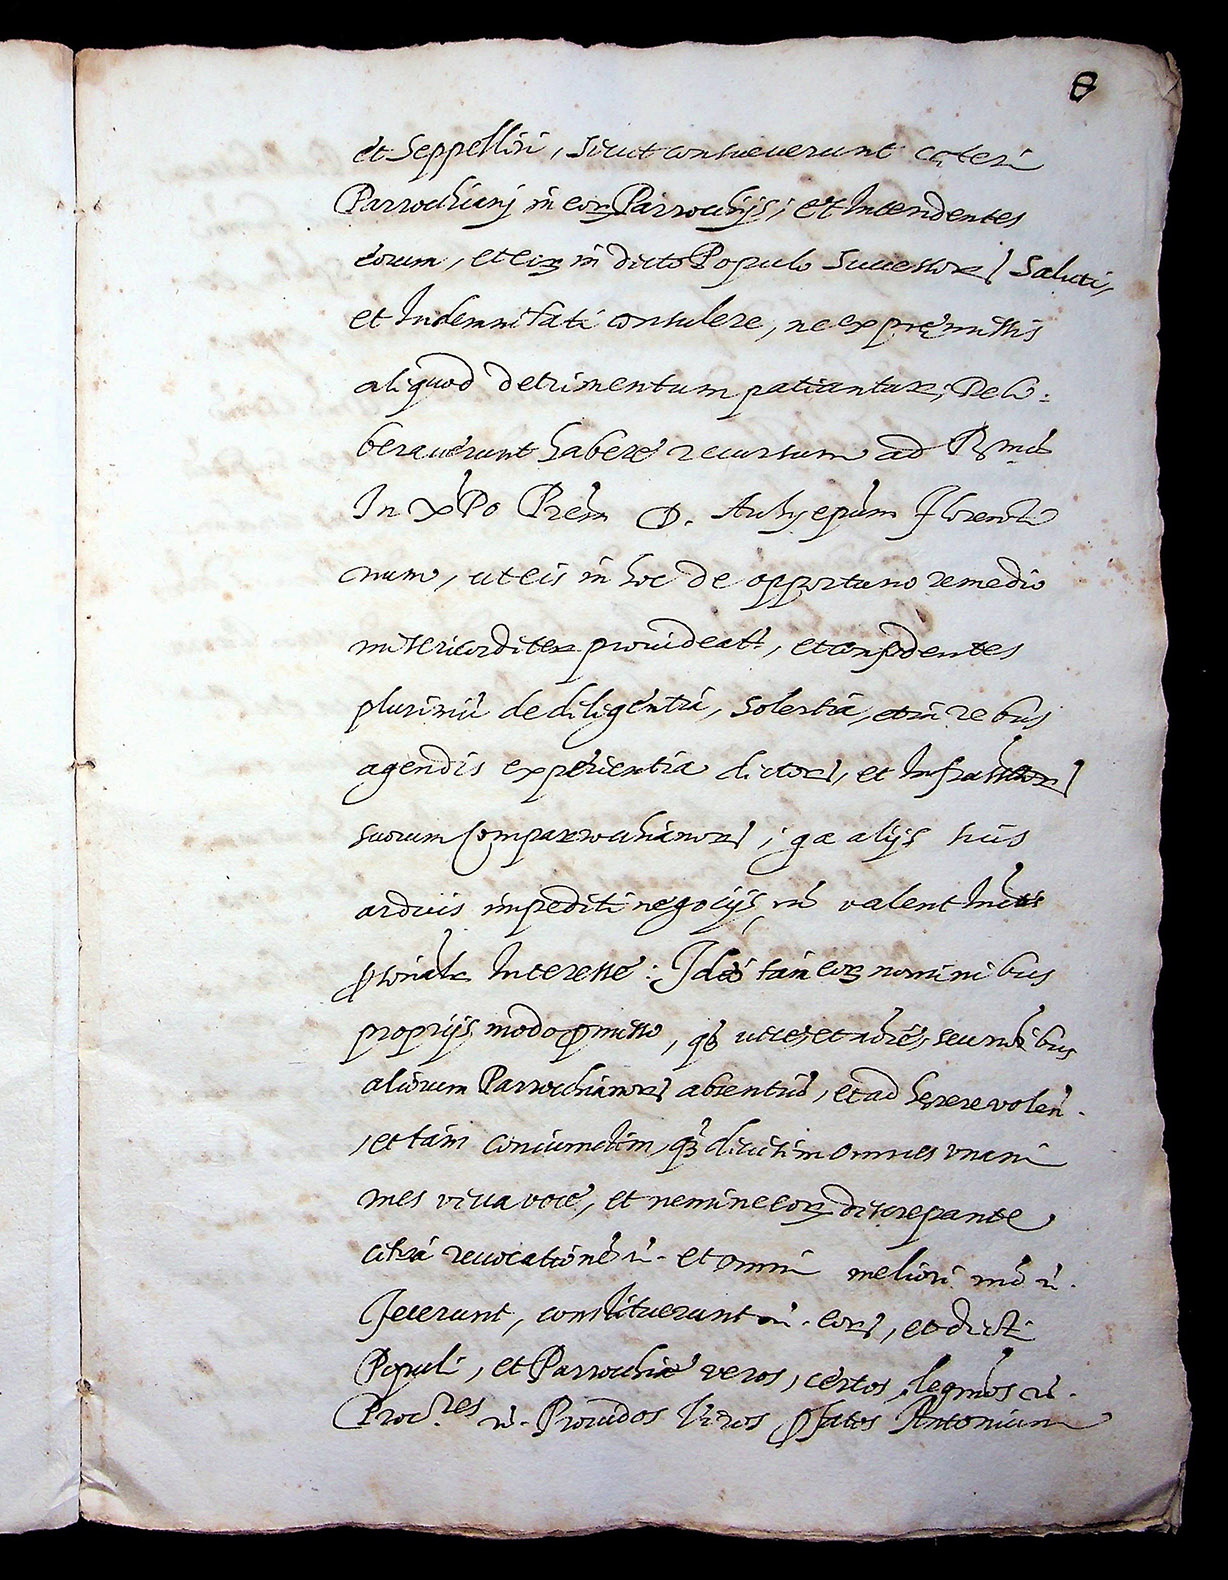 8
et Seppelliri, sicut consueverunt cęteri
Parrochianj in eorꝝ Parrochijs; et Intendentes
eorum, et eorꝝ in dicto Populo Successorꝝ Saluti,
et Indemnitati consulere, ne ex pręmissis
aliquod detrimentum patiantur; Deli:
berauerunt habere recursum ad Rmũ
In Xpo Prẽm D. Archiepũm Florenti
num, ut eis in hoc de opportuno remedio
misericorditer prouideatt, et confidentes
plurimũ de diligẽntia, solertia, et in rebus
agendis experientia dictorꝝ, et Infrascttorꝝ
suorum Comparrochianorꝝ; qa alijs suis
arduis impediti negocijs, nõ valent
psonalr Interesse: Ideo tam eorꝝ nominibus
proprijs modo pmisso, qꝫ uice, et noie, seu noibus
aliorum Parrochianorꝝ absentiũ, et ad hęrere volen.
, et tam coniunctim, qꝫ diuisim omnes vnani
mes viua voce, et nemine eorꝝ discrepante
citra reuocationẽ ñ. et omni meliori mõ ñ.
Fecerunt, constituerunt ñ. eorꝝ, et dicti
Populi, et Parrochiæ veros, certos, legmos ñ.
Procres ñ. Prouidos Viros pfatos Antonium